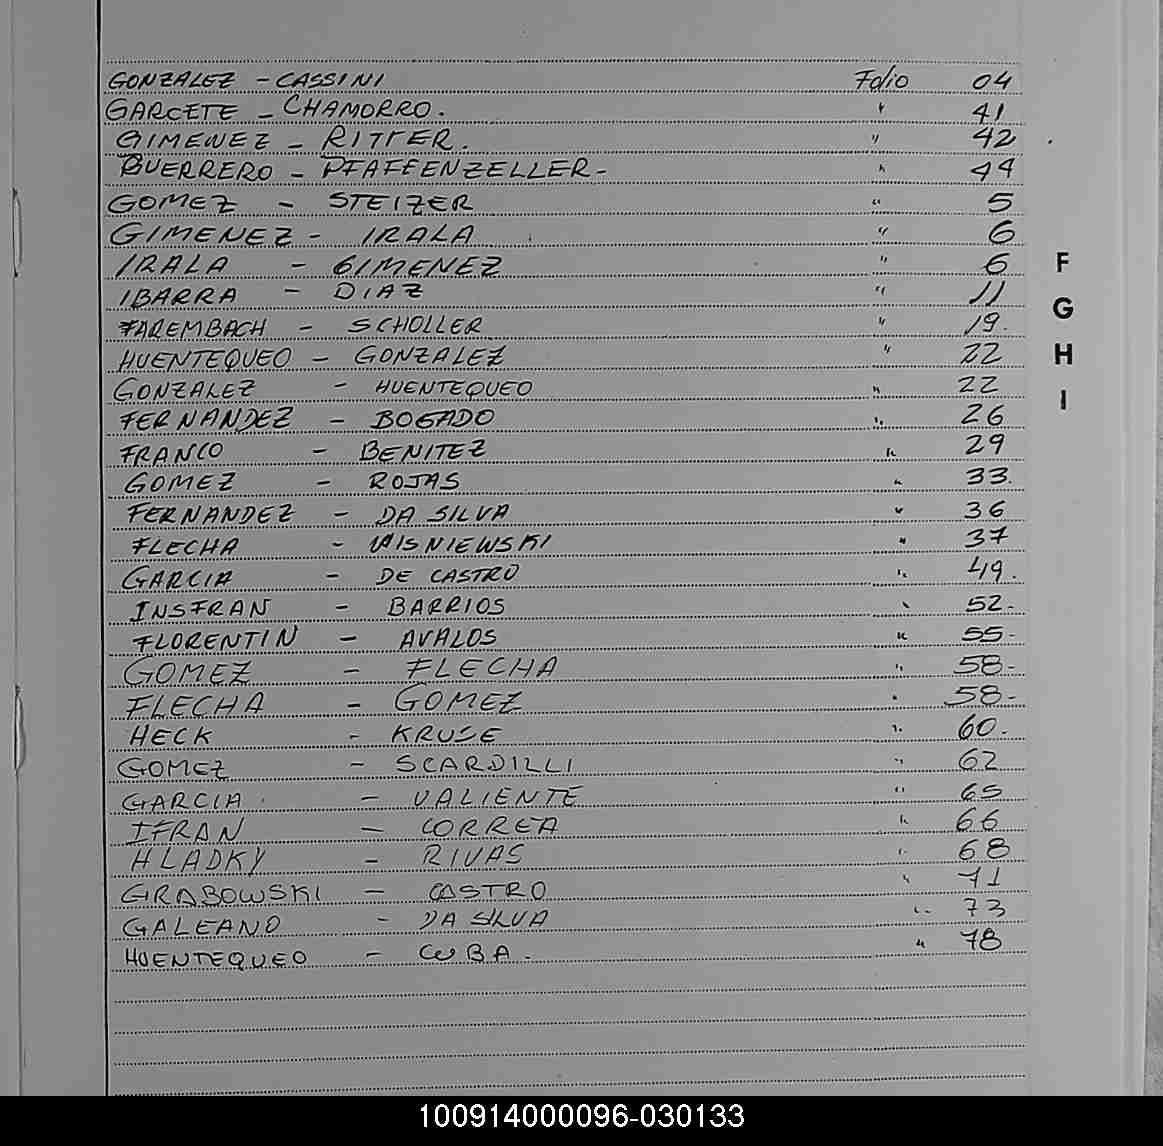 GONZALEZ - CASSINI Folio 04
GARCETE - CHAMORRO. " 41
GIMENEZ - RITTER. " 42
GUERRERO - PFAFFENZELLER- " 44
GOMEZ - STEIZER " 5
GIMENEZ - IRALA " 6
IRALA - GIMENEZ " 6
IBARRA - DIAZ " 11
FAREMBACH - SCHOLLER " 19.
HUENTEQUEO - GONZALEZ " 22
GONZALEZ - HUENTEQUEO " 22
FERNANDEZ - BOGADO " 26
FRANCO - BENITEZ " 29
GOMEZ - ROJAS " 33.
FERNANDEZ - DA SILVA " 36
FLECHA - WISNIEWSKI " 37
GARCIA - DE CASTRO " 49.
INSFRAN - BARRIOS " 52-
FLORENTIN - AVALOS " 55-
GOMEZ - FLECHA " 58-
FLECHA - GOMEZ " 58-
HECK - KRUSE " 60.
GOMEZ - SCARDILLI " 62
GARCIA - VALIENTE " 65
IFRAN - CORREA " 66
HLADKY - RIVAS " 68
GRABOWSKI - CASTRO " 71
GALEANO - DA SILVA " 73
HUENTEQUEO - CUBA. " 78
F
G
H
I
100914000096-030133